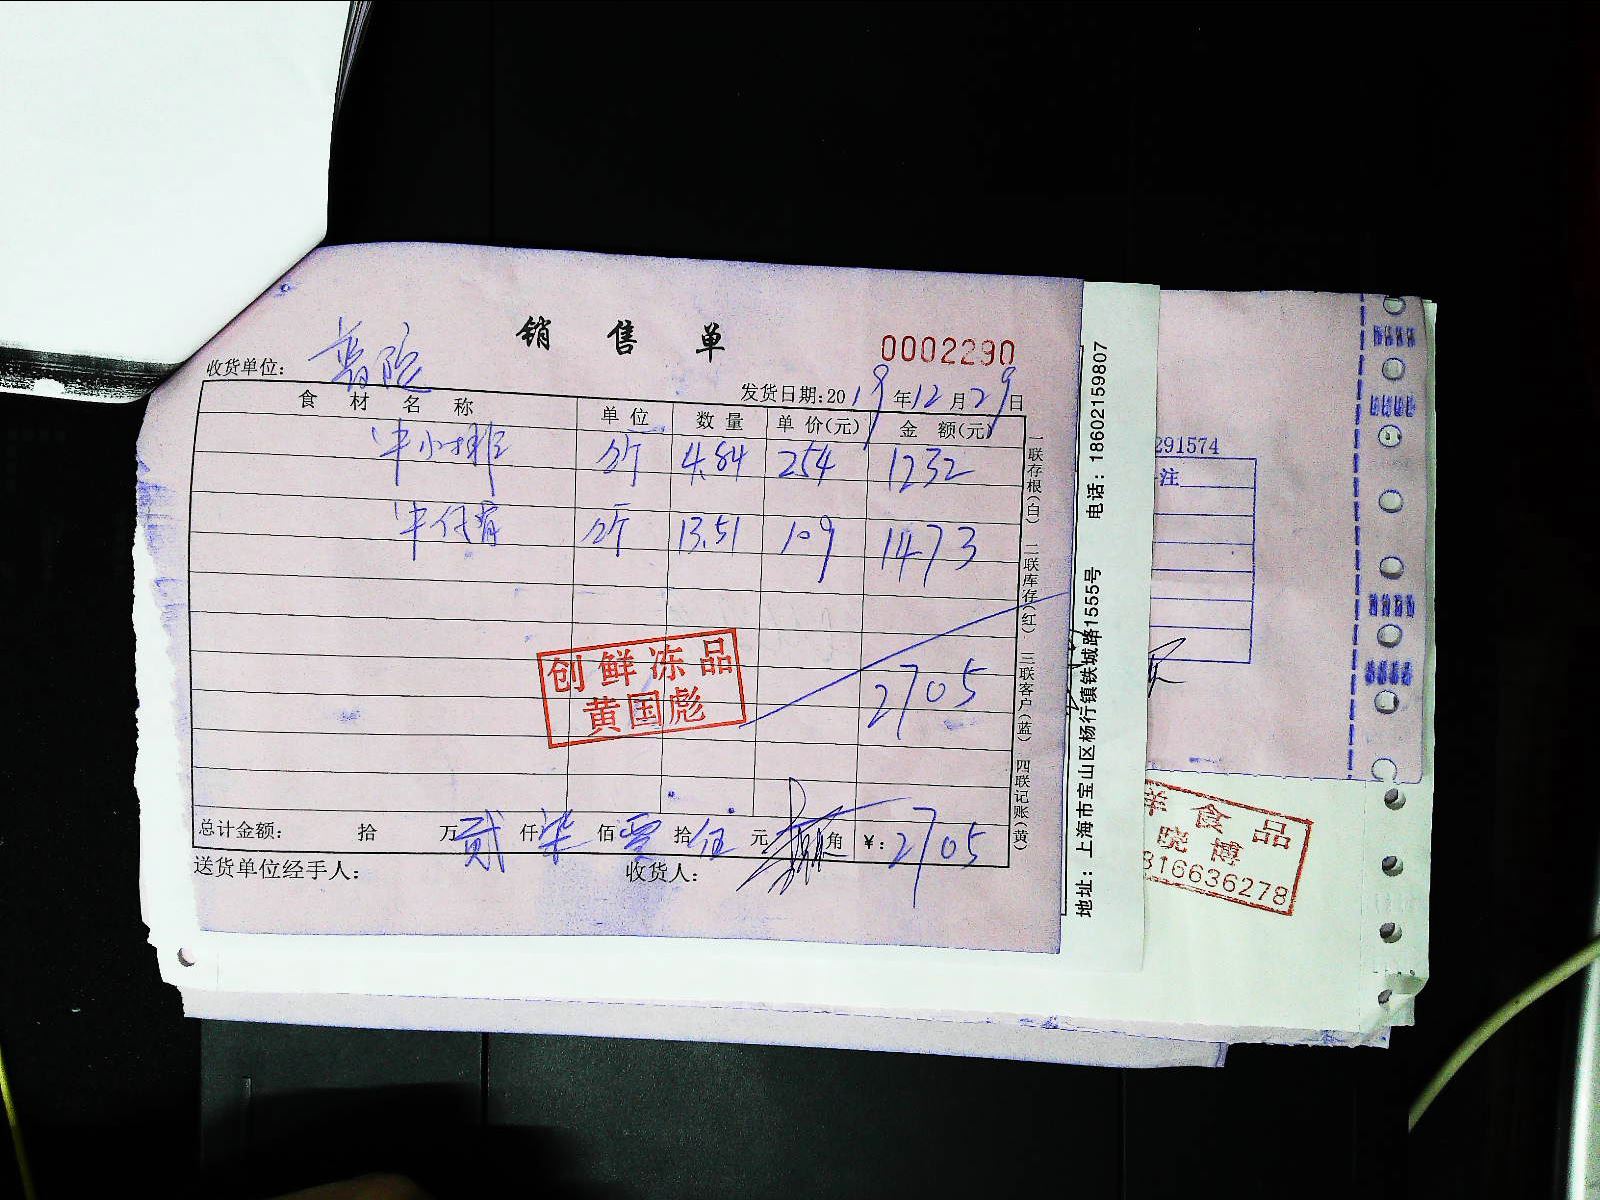 销售单
0002290
收货单位：普陀
发货日期:2019年12月29日
食材名称 单位 数量 单价(元) 金额(元)
牛小排 公斤 4.84 254 1232
牛仔骨 公斤 13.51 109 1473
2705
创鲜冻品
黄国彪
总计金额： 拾 万贰仟柒佰零拾伍元 角 ¥：2705
送货单位经手人： 收货人：
一联存根(白) 二联库存(红) 三联客户(蓝) 四联记账(黄)
地址：上海市宝山区杨行镇铁城路1555号 电话：18602159807
291574
注
洋食品
晓博
816636278